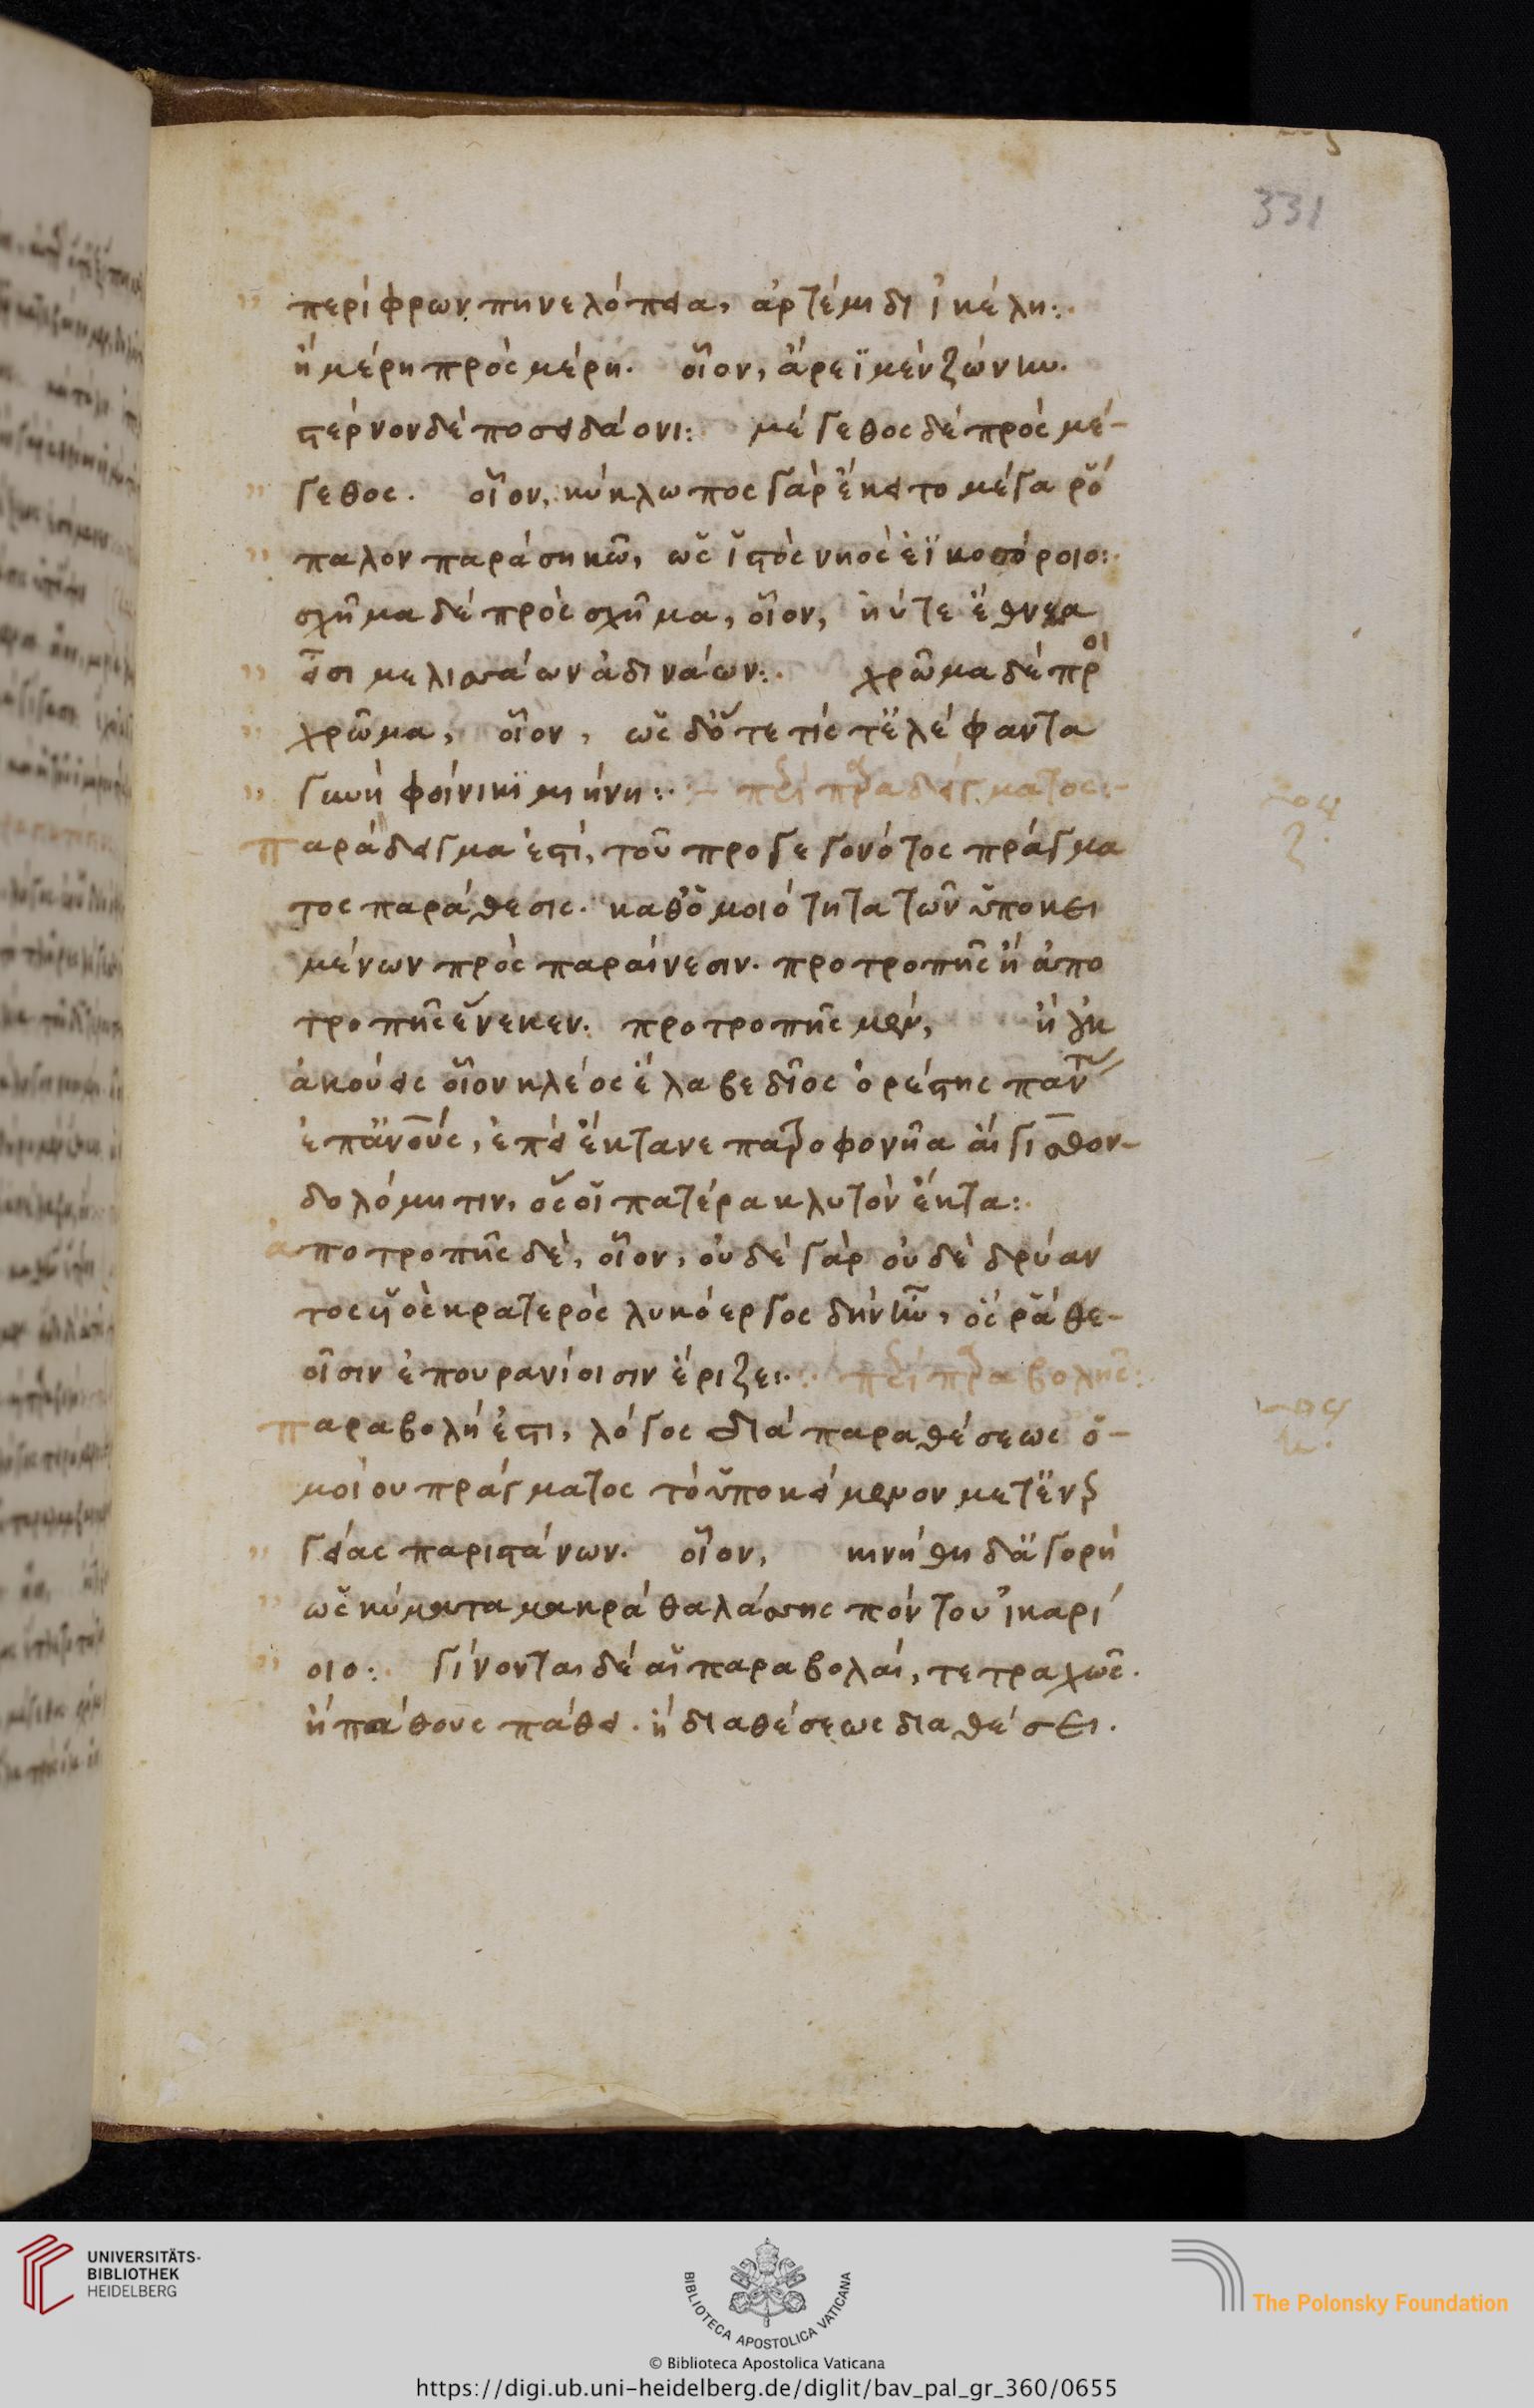 331
περίφρων πηνελόπεια, ἀρτέμιδι ἰκέλη:
ἢ μέρη πρὸς μέρη. οἷον, ἄρεϊ μὲν ζώνην.
στέρνον δὲ ποσειδάονι: μέγεθος δὲ πρὸς μέ-
γεθος. οἷον, κύκλωπος γὰρ ἔκειτο μέγα ῥό
παλον παρὰ σηκῶ, ὡς ἱστὸς νηὸς ἐϊκοσόροιο:
σχῆμα δὲ πρὸς σχῆμα, οἷον, ἠύτε ἔθνεα
εἶσι μελισσάων ἀδινάων: χρῶμα δὲ πρὸ
χρῶμα, οἷον, ὡς δ' ὅτε τίς τ' ἐλέφαντα
γυνὴ φοίνικι μιήνη: περὶ παραδείγματος:
παράδειγμα ἐστί, τοῦ προγεγονότος πράγμα
τος παράθεσις. καθ' ὁμοιότητα τῶν ὑποκει
μένων πρὸς παραίνεσιν. προτροπῆς ἢ ἀπο
τροπῆς ἕνεκεν. προτροπῆς μὲν, ἢ οὐκ
ἀκούεις οἷον κλέος ἔλαβε δῖος ὀρέστης παντ
ἐπ' ἀνους, ἐπεὶ ἔκτανε πατροφονῆα αἴγισθον
δολόμητιν, ὅς οἱ πατέρα κλυτὸν ἔκτα:
ἀποτροπῆς δὲ, οἷον, οὐδὲ γὰρ οὐδὲ δρύαν
τος υἱὸς κρατερὸς λυκόεργος δὴν ἦν, ὅς ῥα θε-
οῖσιν ἐπουρανίοισιν ἔριζεν: περὶ παραβολῆς:
παραβολή ἐστι, λόγος διὰ παραθέσεως ὁ-
μοίου πράγματος τὸ ὑποκείμενον μετ' ἐναρ
γείας παριστάνων. οἷον, κινήθη δ' ἀγορὴ
ὡς κύματα μακρὰ θαλάσσης πόντου ἰκαρί
οιο: γίνονται δὲ αἱ παραβολαί, τετραχῶς.
ἢ πάθους πάθει. ἢ διαθέσεως διαθέσει.
UNIVERSITÄTS-
BIBLIOTHEK
HEIDELBERG
BIBLIOTECA APOSTOLICA VATICANA
The Polonsky Foundation
© Biblioteca Apostolica Vaticana
https://digi.ub.uni-heidelberg.de/diglit/bav_pal_gr_360/0655